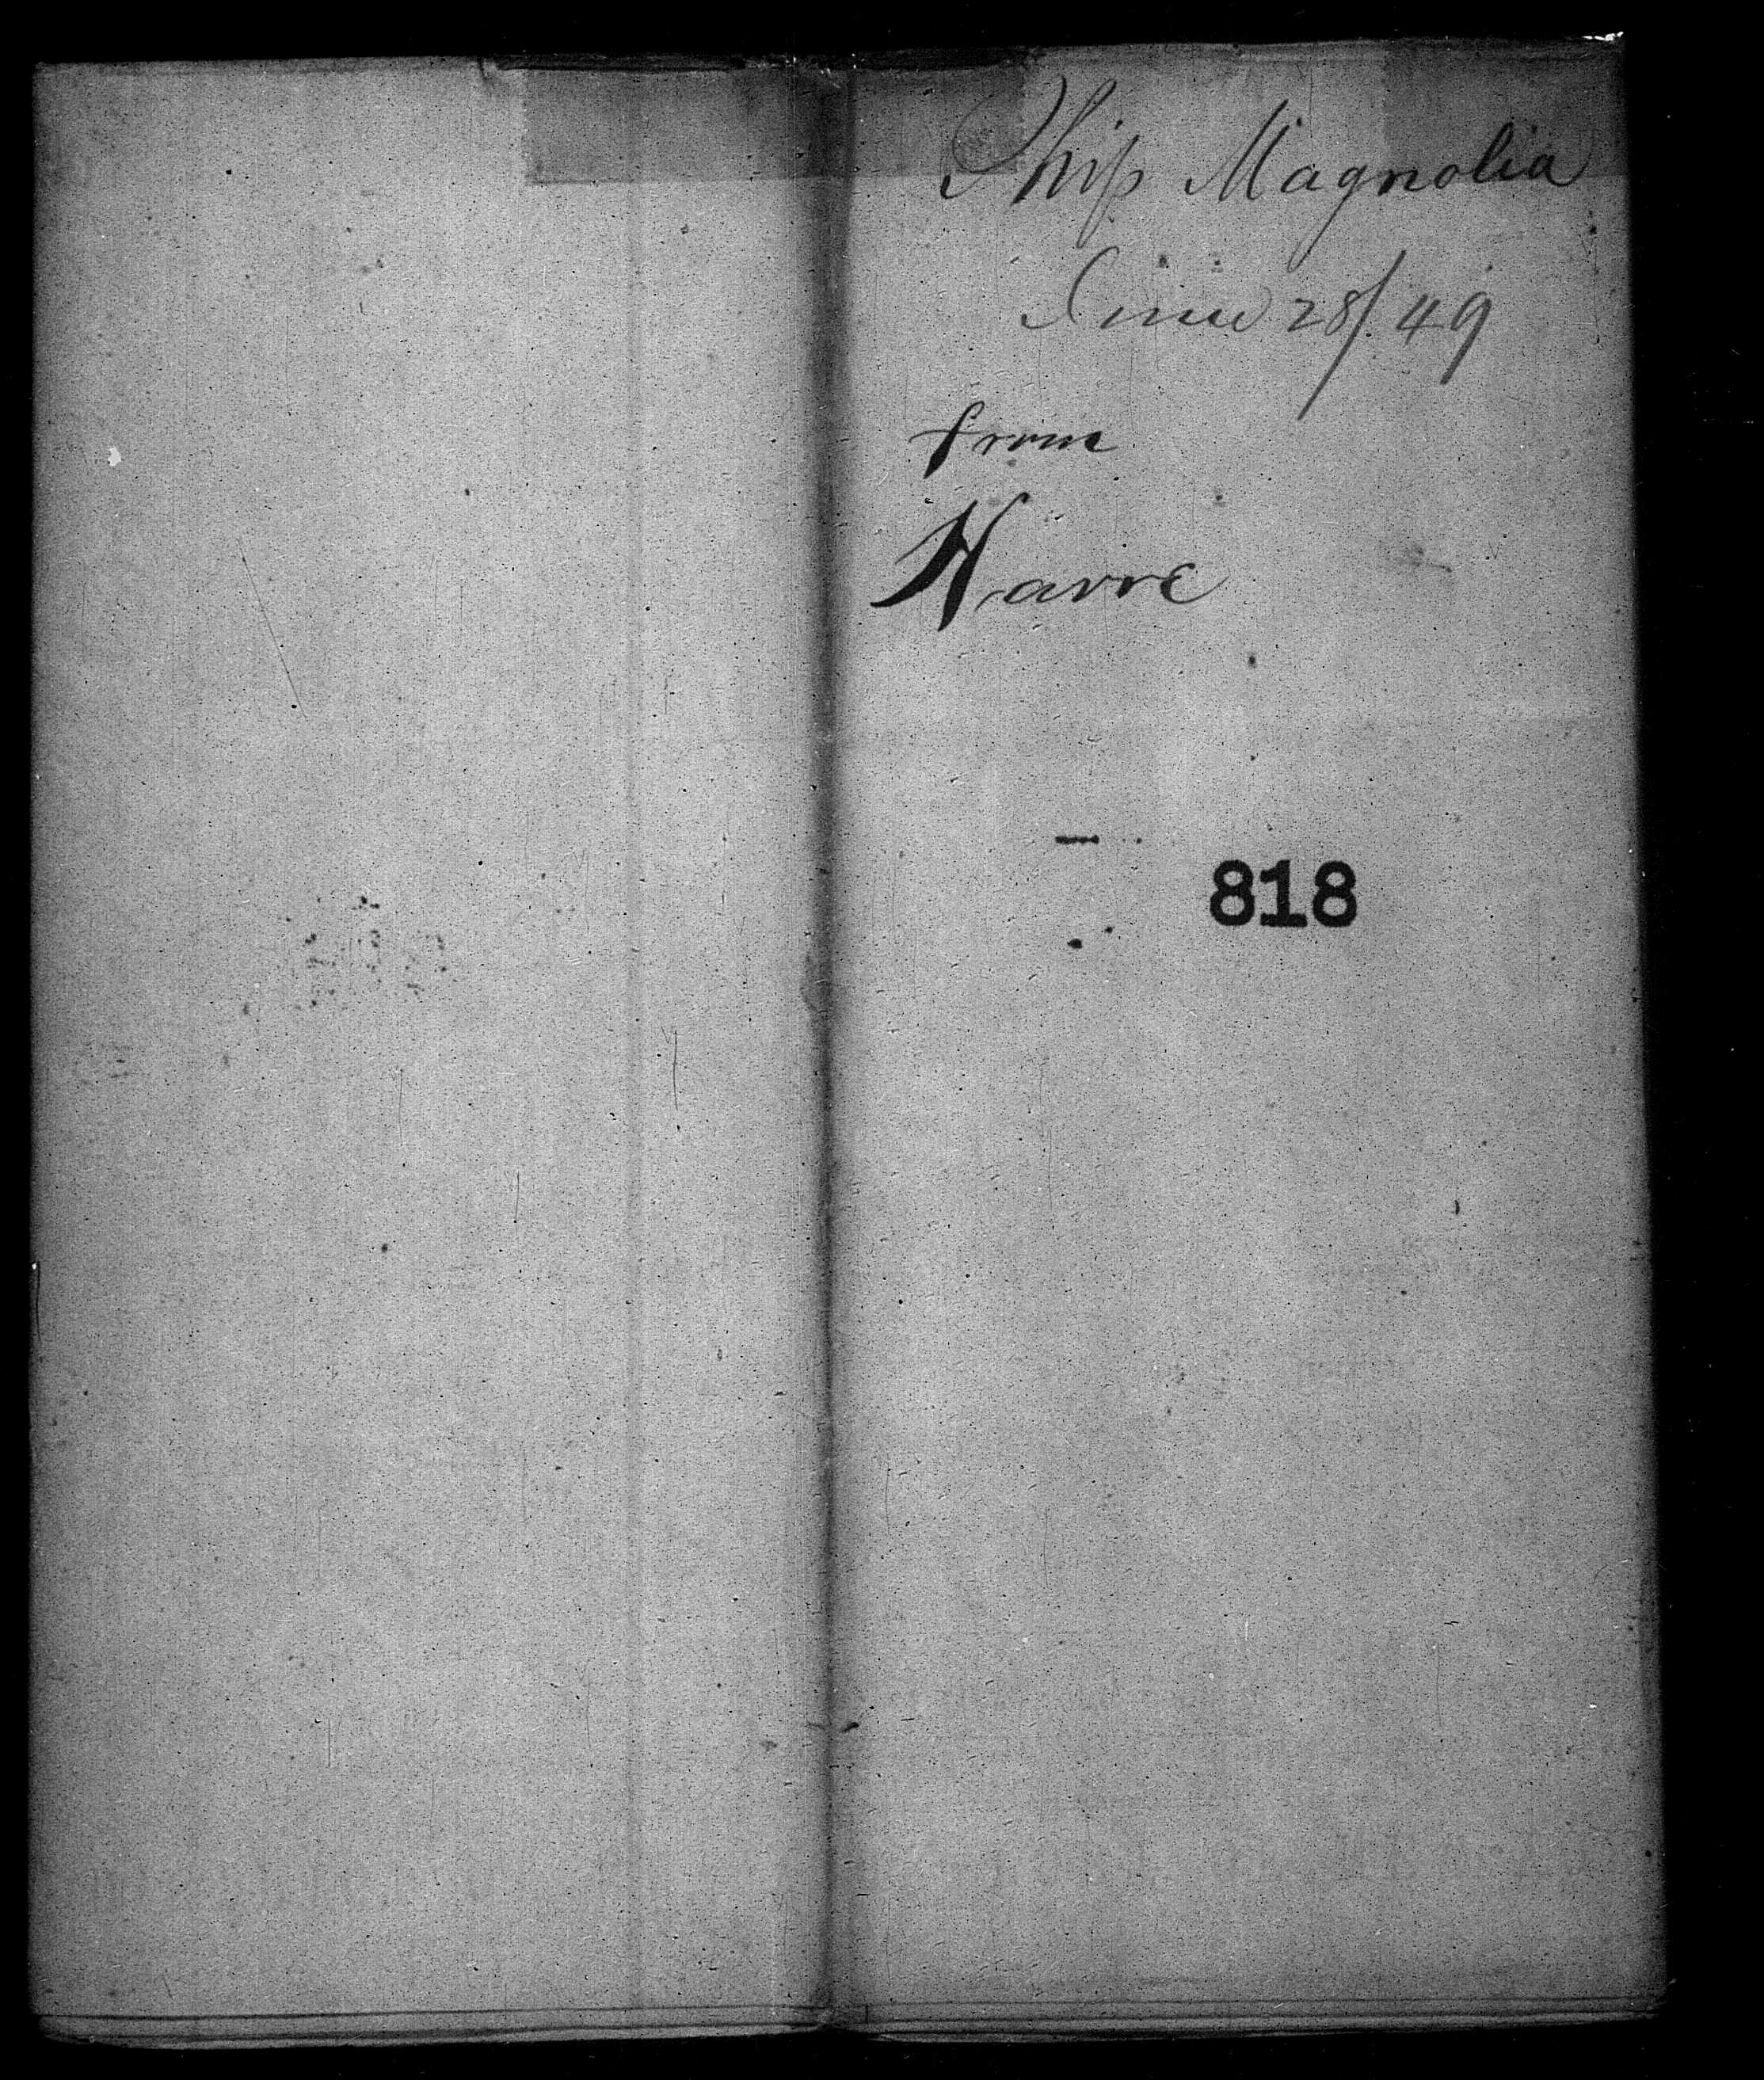 Ship Magnolia
June 28/49
from
Havre
818